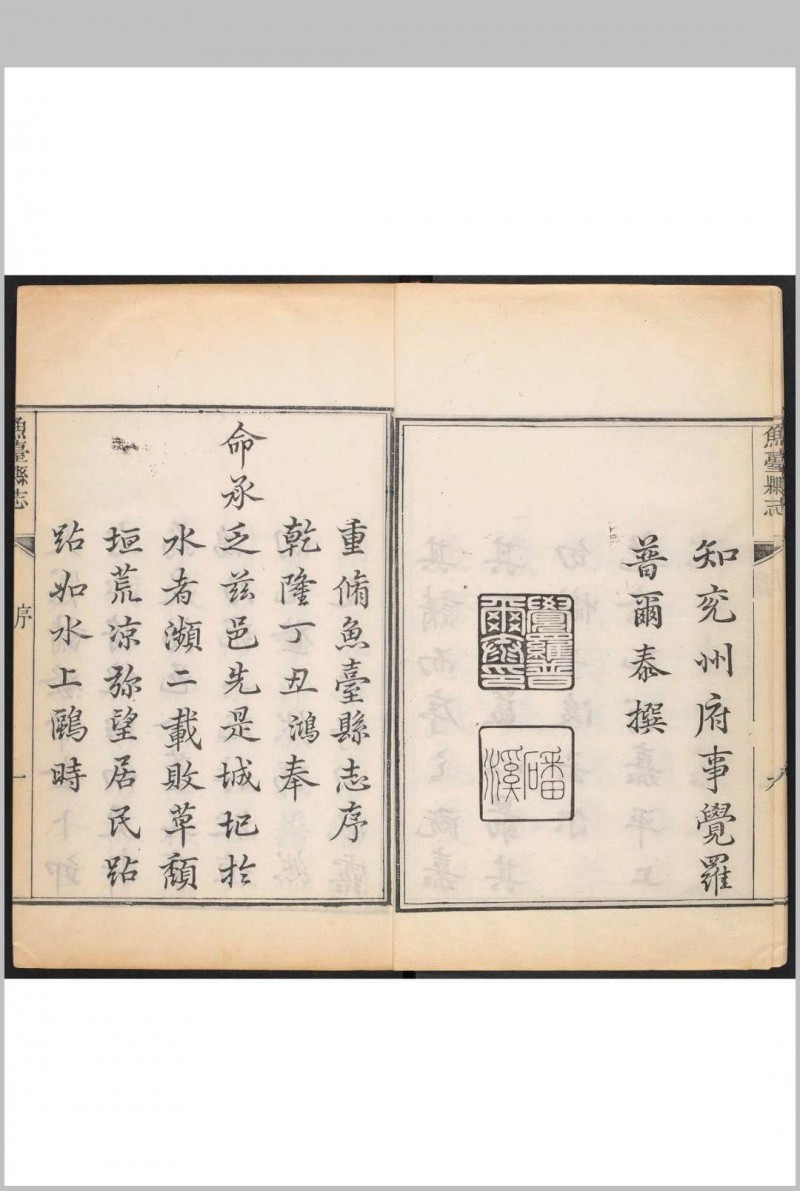 魚臺縣志
知兖州府事覺羅
普爾泰撰
覺羅普
爾泰印
磻
溪
重脩魚臺縣志序
乾隆丁丑鴻奉
命承乏兹邑先是城圮於
水者瀕二載敗草頽
垣荒涼弥望居民跕
跕如水上鷗時
魚臺縣志
序
一